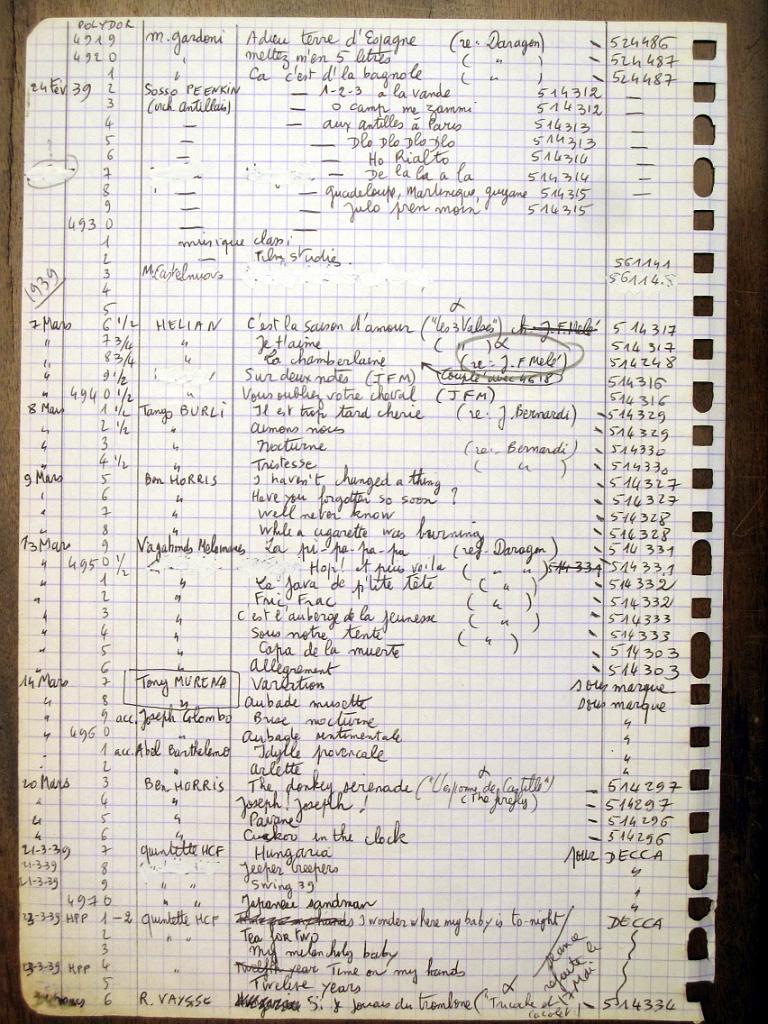 POLYDOR
4919 M. Gardoni Adieu terre d'Espagne (re: Daragon) 524486
4920 " mettez m'en 5 litres ( " ) 524487
1 " Ca c'est d'la bagnole ( " ) 524487
24 Fév 39 2 Sosso PEENKIN — 1-2-3 à la vande 514312 —
3 (orch. antillais) — O camp me zanmi 514312
4 — — aux antilles à Paris 514313 —
5 — — Dlo Dlo Dlo Dlo 514313 —
6 — — Ho Rialto 514314 —
7 — De la la a la 514314 —
8 — — guadeloupe, martinique, guyane 514315 —
9 — — Julo pren moin 514315
4930 — —
1 musique classi
2 — Film studio. 561141
1939 3 M. Castelnuovo
4
5
7 Mars 6 1/2 HELIAN C'est la saison d'amour ("les 3 Valses") 514317
" 7 3/4 " Je t'aime ( " ) 514317
" 8 3/4 " La chamberlaine (re: J.F Melé) 514248
" 9 1/2 Sur deux notes (JFM) couplé avec 4618 514316
" 4940 1/2 " Vous oubliez votre cheval (JFM) 514316
8 Mars 1 1/2 Tango BURLI Il est trop tard cherie (re: J. Bernardi) 514329
" 2 1/2 " aimons nous 514329
" 3 " nocturne (re: Bernardi) 514330
" 4 1/2 " Tristesse ( " ) 514330
9 Mars 5 Ben HORRIS I haven't changed a thing 514327
" 6 " Have you forgotten so soon ? 514327
" 7 " Well never know 514328
" 8 " While a cigarette was burning 514328
13 Mars 9 Vagabonds Melomanes La pi-pa-pa-pa (reg. Daragon) 514331
" 4950 1/2 Hop! et puis voila ( " " ) 514331 514331
" 1 " La Java de p'tite tête ( " ) 514332
" 2 " Fric Frac ( " ) 514332
3 " C'est l'auberge de la jeunesse ( " ) 514333
" 4 " Sous notre tente ( " ) 514333
" 5 " Capa de la muerte 514303
" 6 " Allègrement 514303
14 Mars 7 Tony MURENA Variation sous marque
" 8 " Aubade musette sous marque
" 9 acc. Joseph Colombo Brise nocturne "
" 4960 Aubade sentimentale "
1 acc. Abel Barthelemo Idylle provencale "
2 arlette "
20 Mars 3 Ben HORRIS The donkey serenade (The firefly) 514297
" 4 " Joseph! Joseph! 514297
" 5 " Pavane 514296
" 6 " Cuckoo in the clock 514296
21-3-39 7 quintette HCF Hungaria pour DECCA
21-3-39 8 " " Jeeper creepers "
21-3-39 9 " " Swing 39 "
4970 " " Japanese sandman "
23-3-39 HPP 1-2 quintette HCF I wonder where my baby is to-night DECCA
2 " " Tea for two
3 My melancholy baby
23-3-39 HPP 4 " Time on my hands
5 Twelve years
6 R. VAYSSE Si je jouais du trombone 514334
seance refaite le 17 Mai